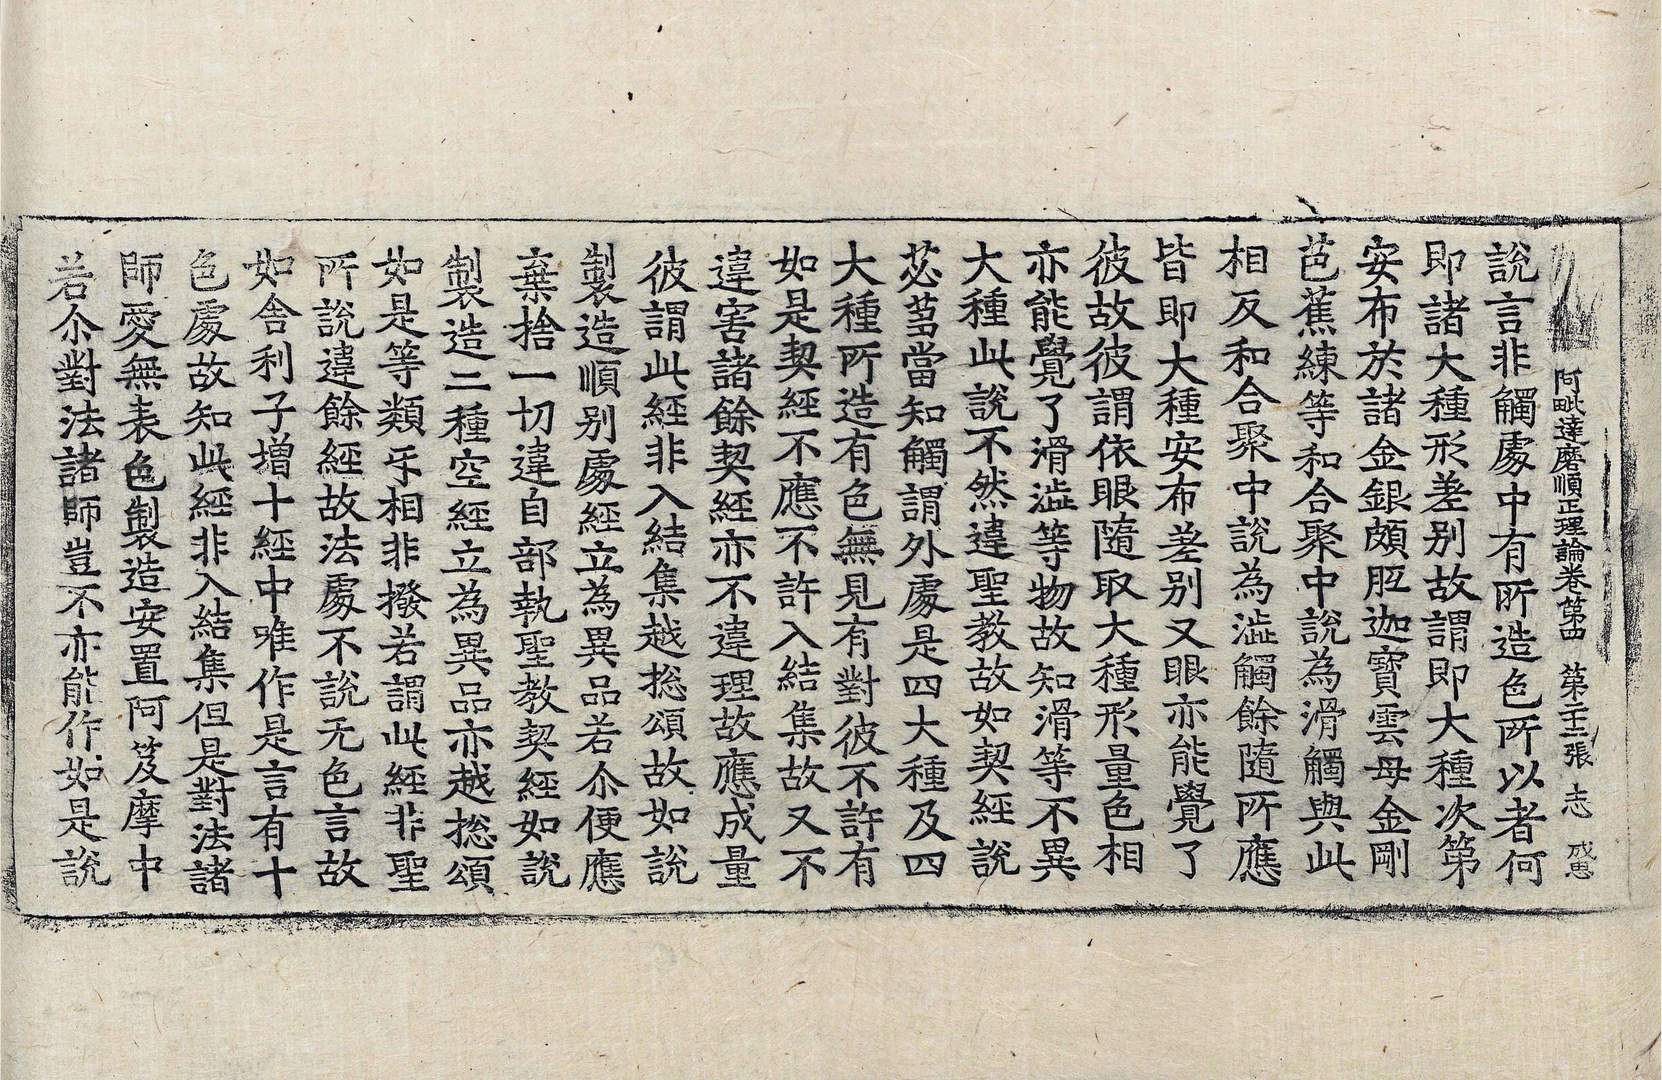 阿毗達磨順正理論卷第四　第二十二張　志　成思
說言非觸處中有所造色所以者何
即諸大種形差別故謂即大種次第
安布於諸金銀頗胝迦寶雲母金剛
芭蕉練等和合聚中說為滑觸與此
相反和合聚中說為澁觸餘隨所應
皆即大種安布差別又眼亦能覺了
彼故彼謂依眼隨取大種形量色相
亦能覺了滑澁等物故知滑等不異
大種此說不然違聖教故如契經說
苾芻當知觸謂外處是四大種及四
大種所造有色無見有對彼不許有
如是契經不應不許入結集故又不
違害諸餘契經亦不違理故應成量
彼謂此經非入結集越捴頌故如說
製造順別處經立為異品若尒便應
棄捨一切違自部執聖教契經如說
製造二種空經立為異品亦越捴頌
如是等類乐相非撥若謂此經非聖
所說違餘經故法處不說无色言故
如舍利子增十經中唯作是言有十
色處故知此經非入結集但是對法諸
師愛無表色製造安置阿笈摩中
若尒對法諸師豈不亦能作如是說